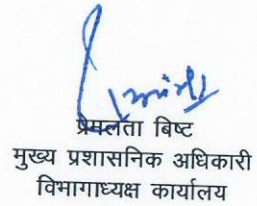 प्रेमलता बिष्ट
मुख्य प्रशासनिक अधिकारी
विभागाध्यक्ष कार्यालय